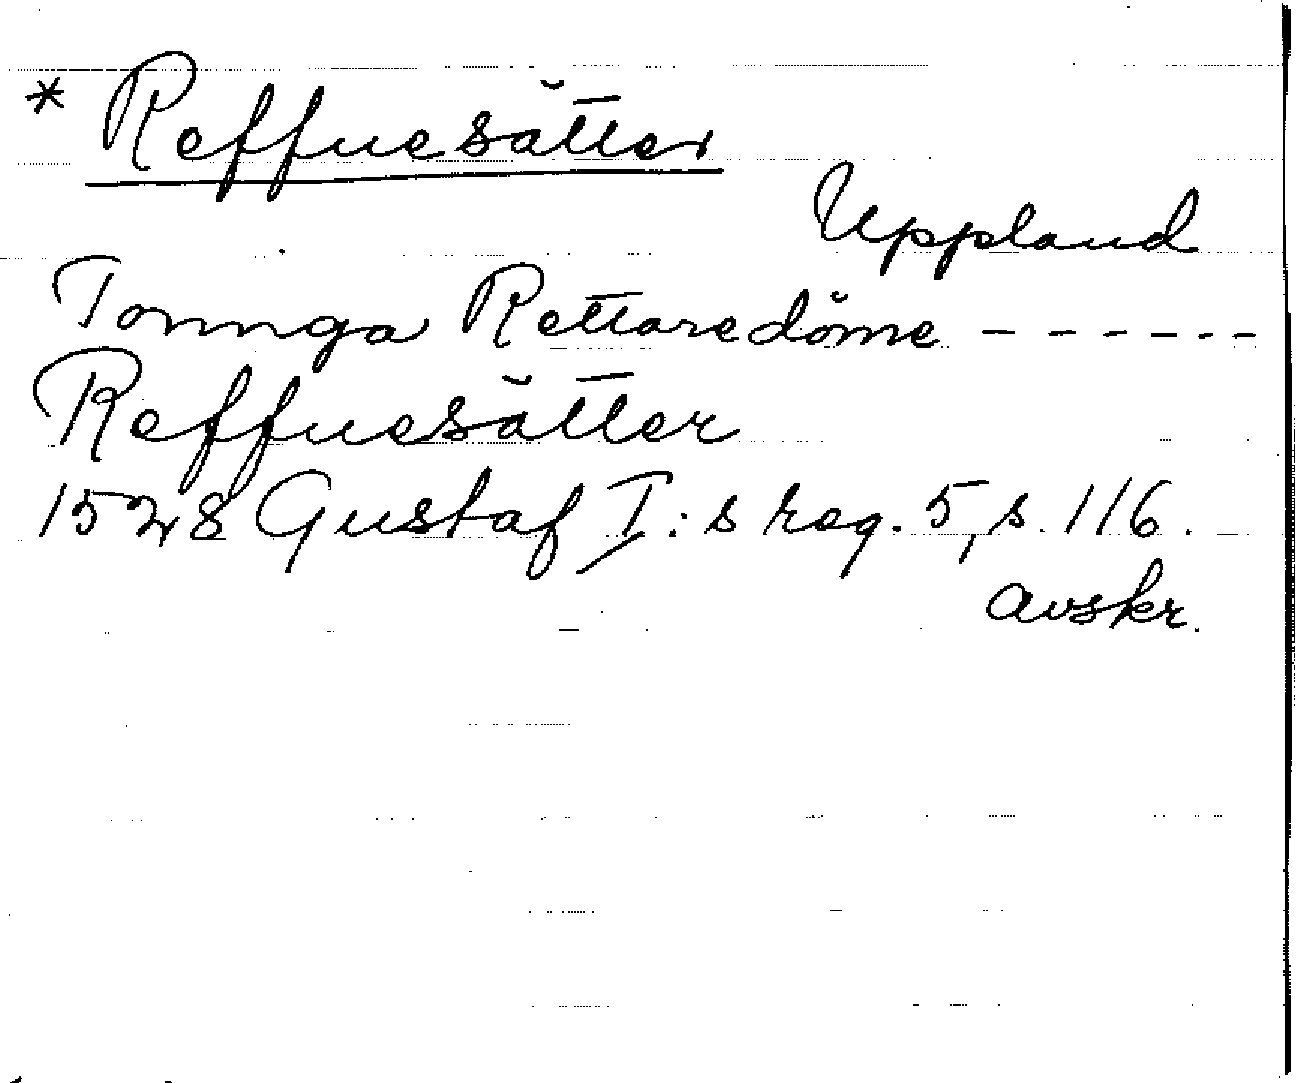 * Reffuesätter
Uppland
Tonnga Rettaredöme ------
Reffuesätter
1528 Gustaf I:s reg. 5, s. 116.
avskr.